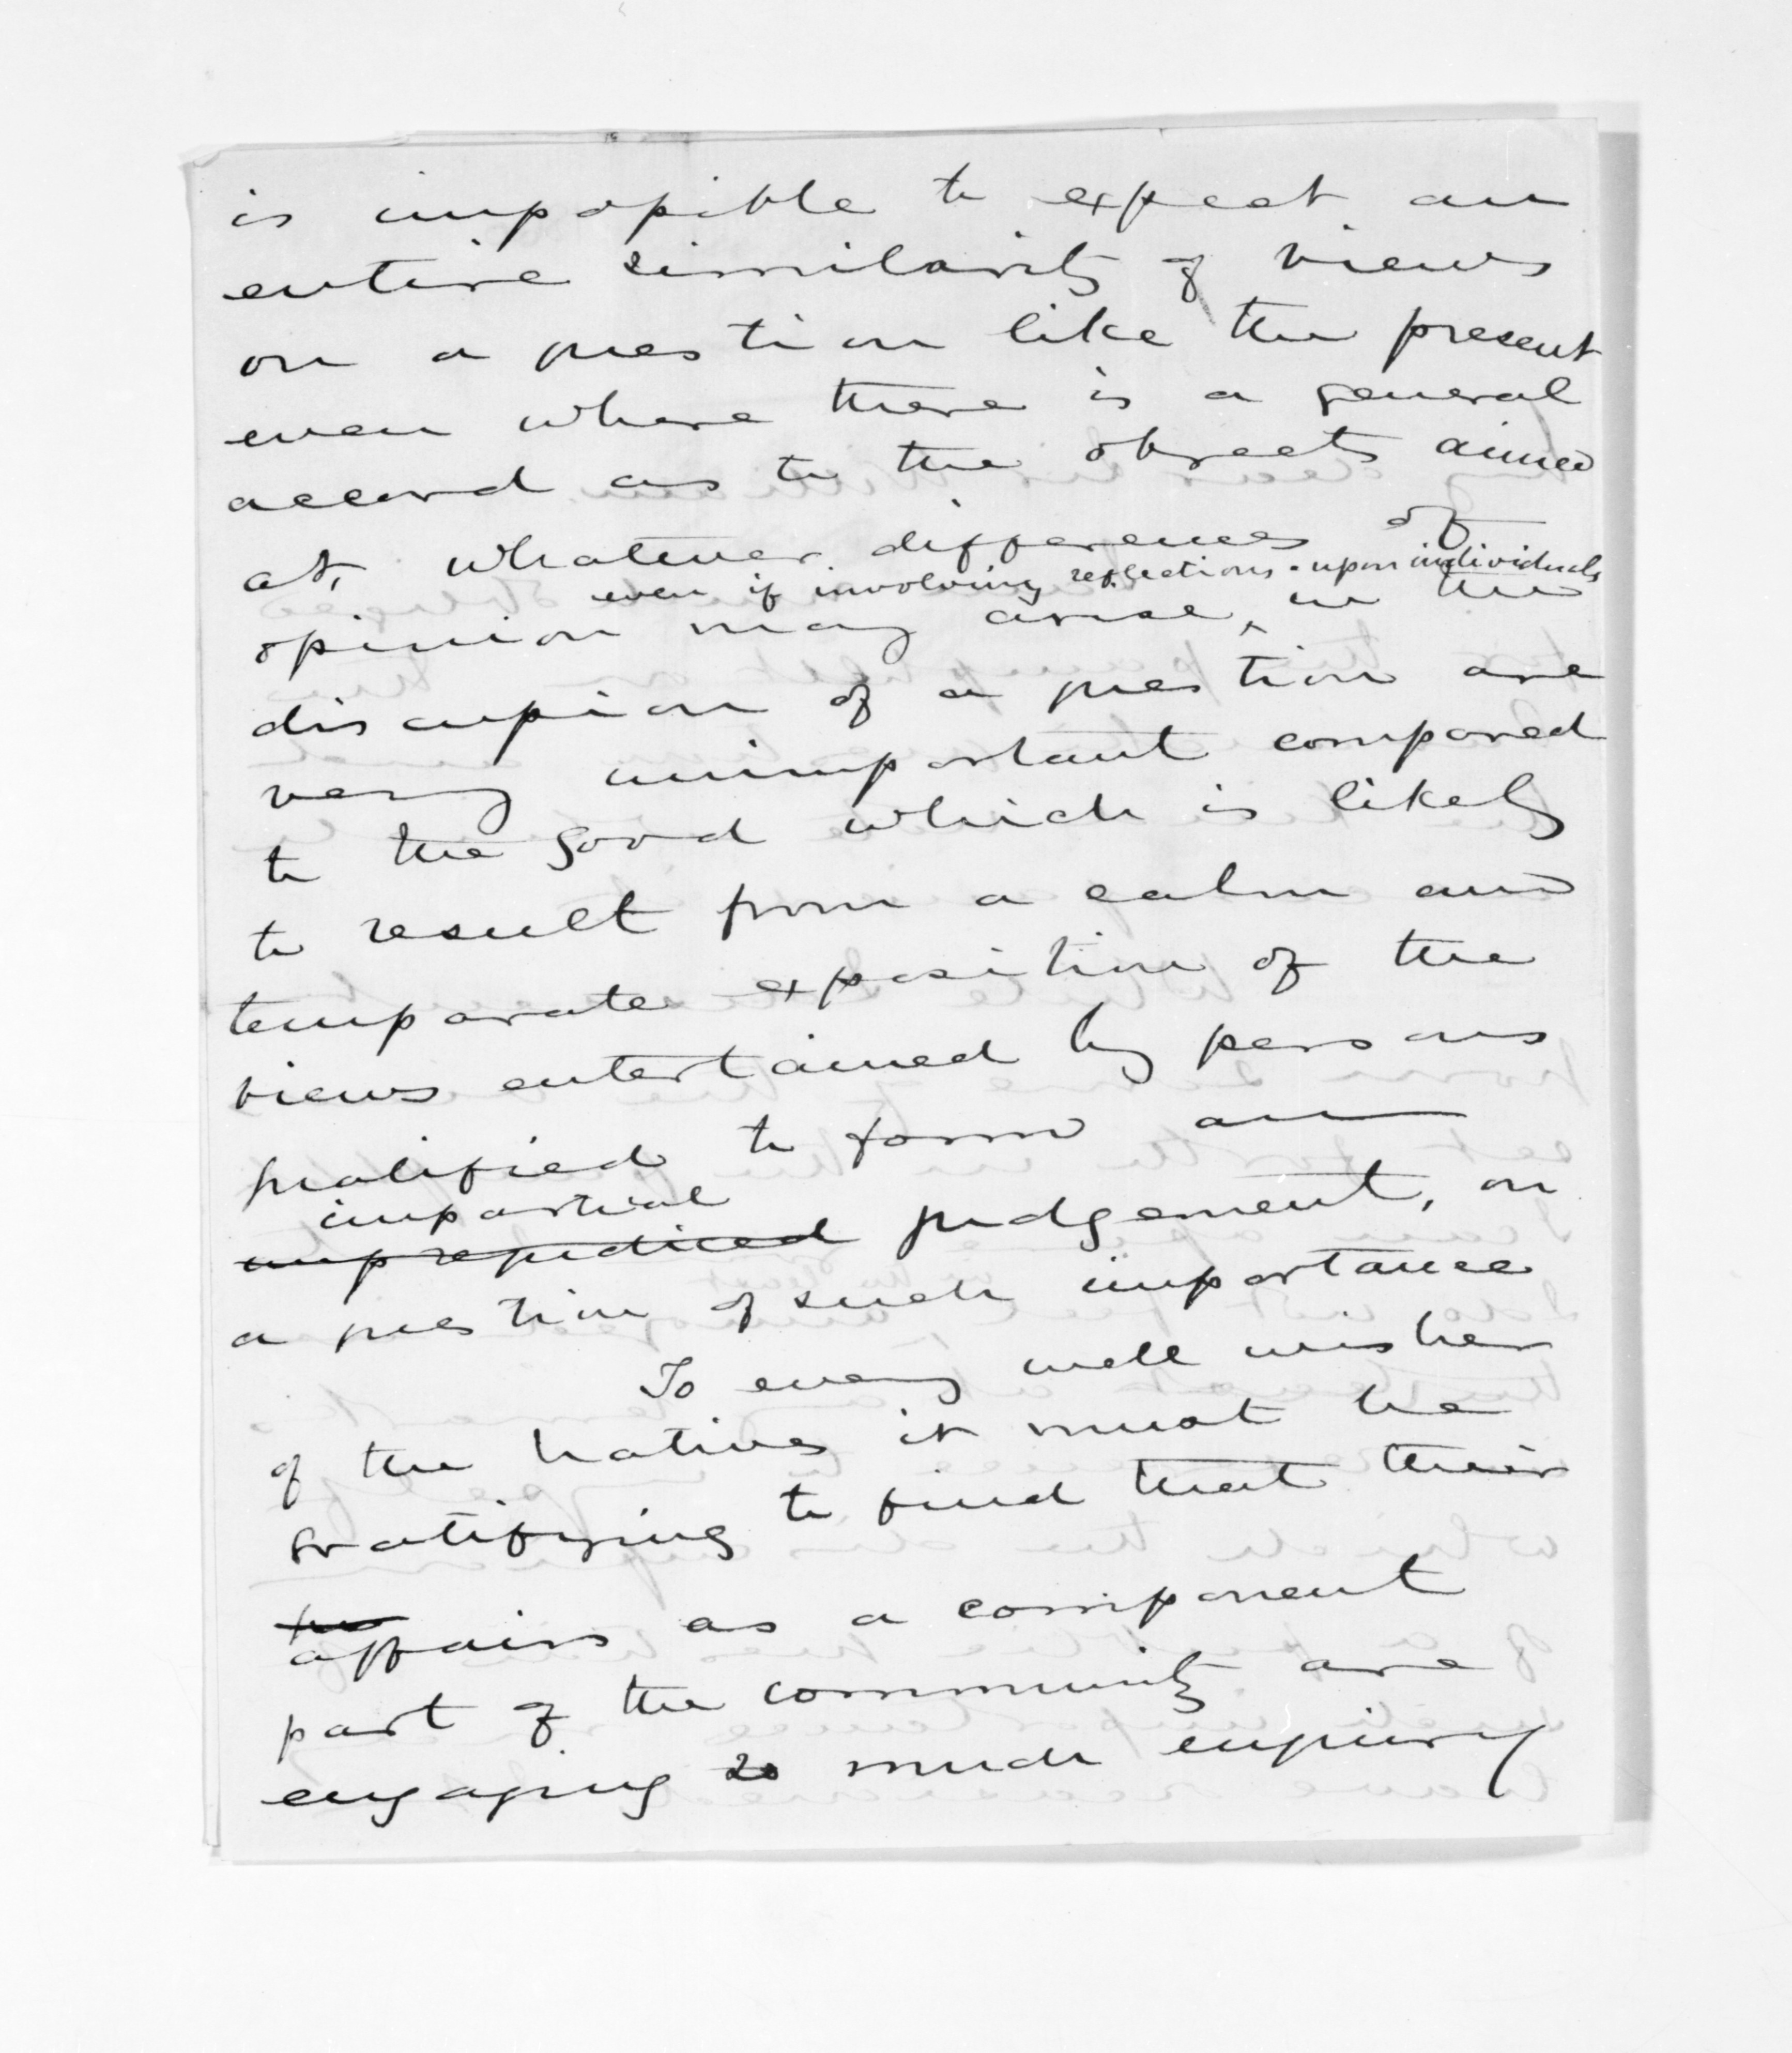 is impossible to expect an
entire similarity of views
on a question like the present
even where there is a general
accord as to the objects aimed
at, whatever differences of
even if involving reflections upon individuals
opinion may arise, in the
discussion of a question are
very unimportant compared
to the good which is likely
to result from a calm and
temparate exposition of the
views entertained by persons
qualified to form an
impartial
unprejudiced judgement, on
a question of such importance
To every well wisher
of the natives it must be
gratifying to find that their
affairs as a component
part of the community are
engaging so much enquiry